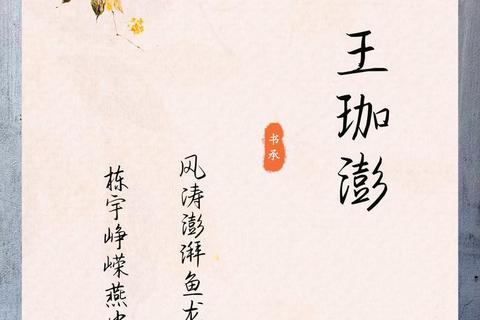 王珈澎
书承
风涛澎湃鱼龙
栋宇峥嵘燕